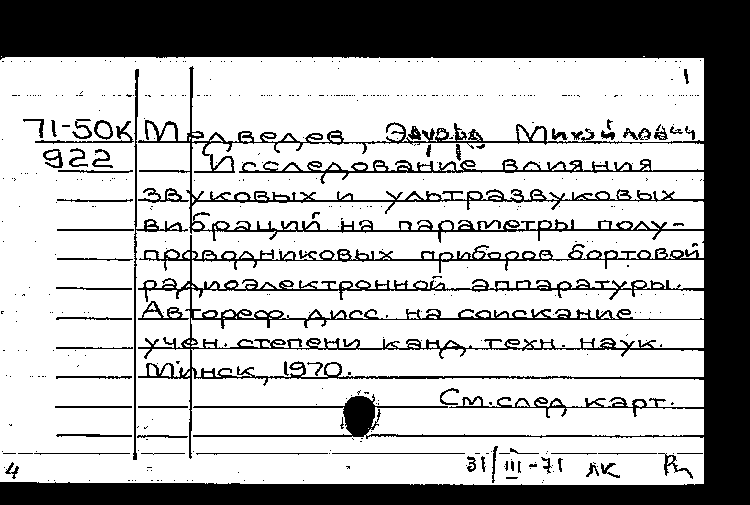 1
71-50К Медведев, Эдуард Михайлович
922 Исследование влияния
звуковых и ультразвуковых
вибраций на параметры полу-
проводниковых приборов бортовой
радиоэлектронной аппаратуры.
Автореф. дисс. на соискание
учен. степени канд. техн. наук.
Минск, 1970.
См. след карт.
4 31/III-71 лк